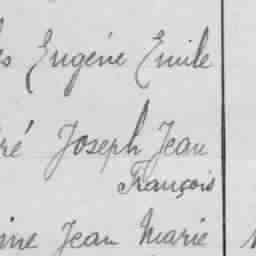 Eugène Emile
Joseph Jean
François
Jean Marie